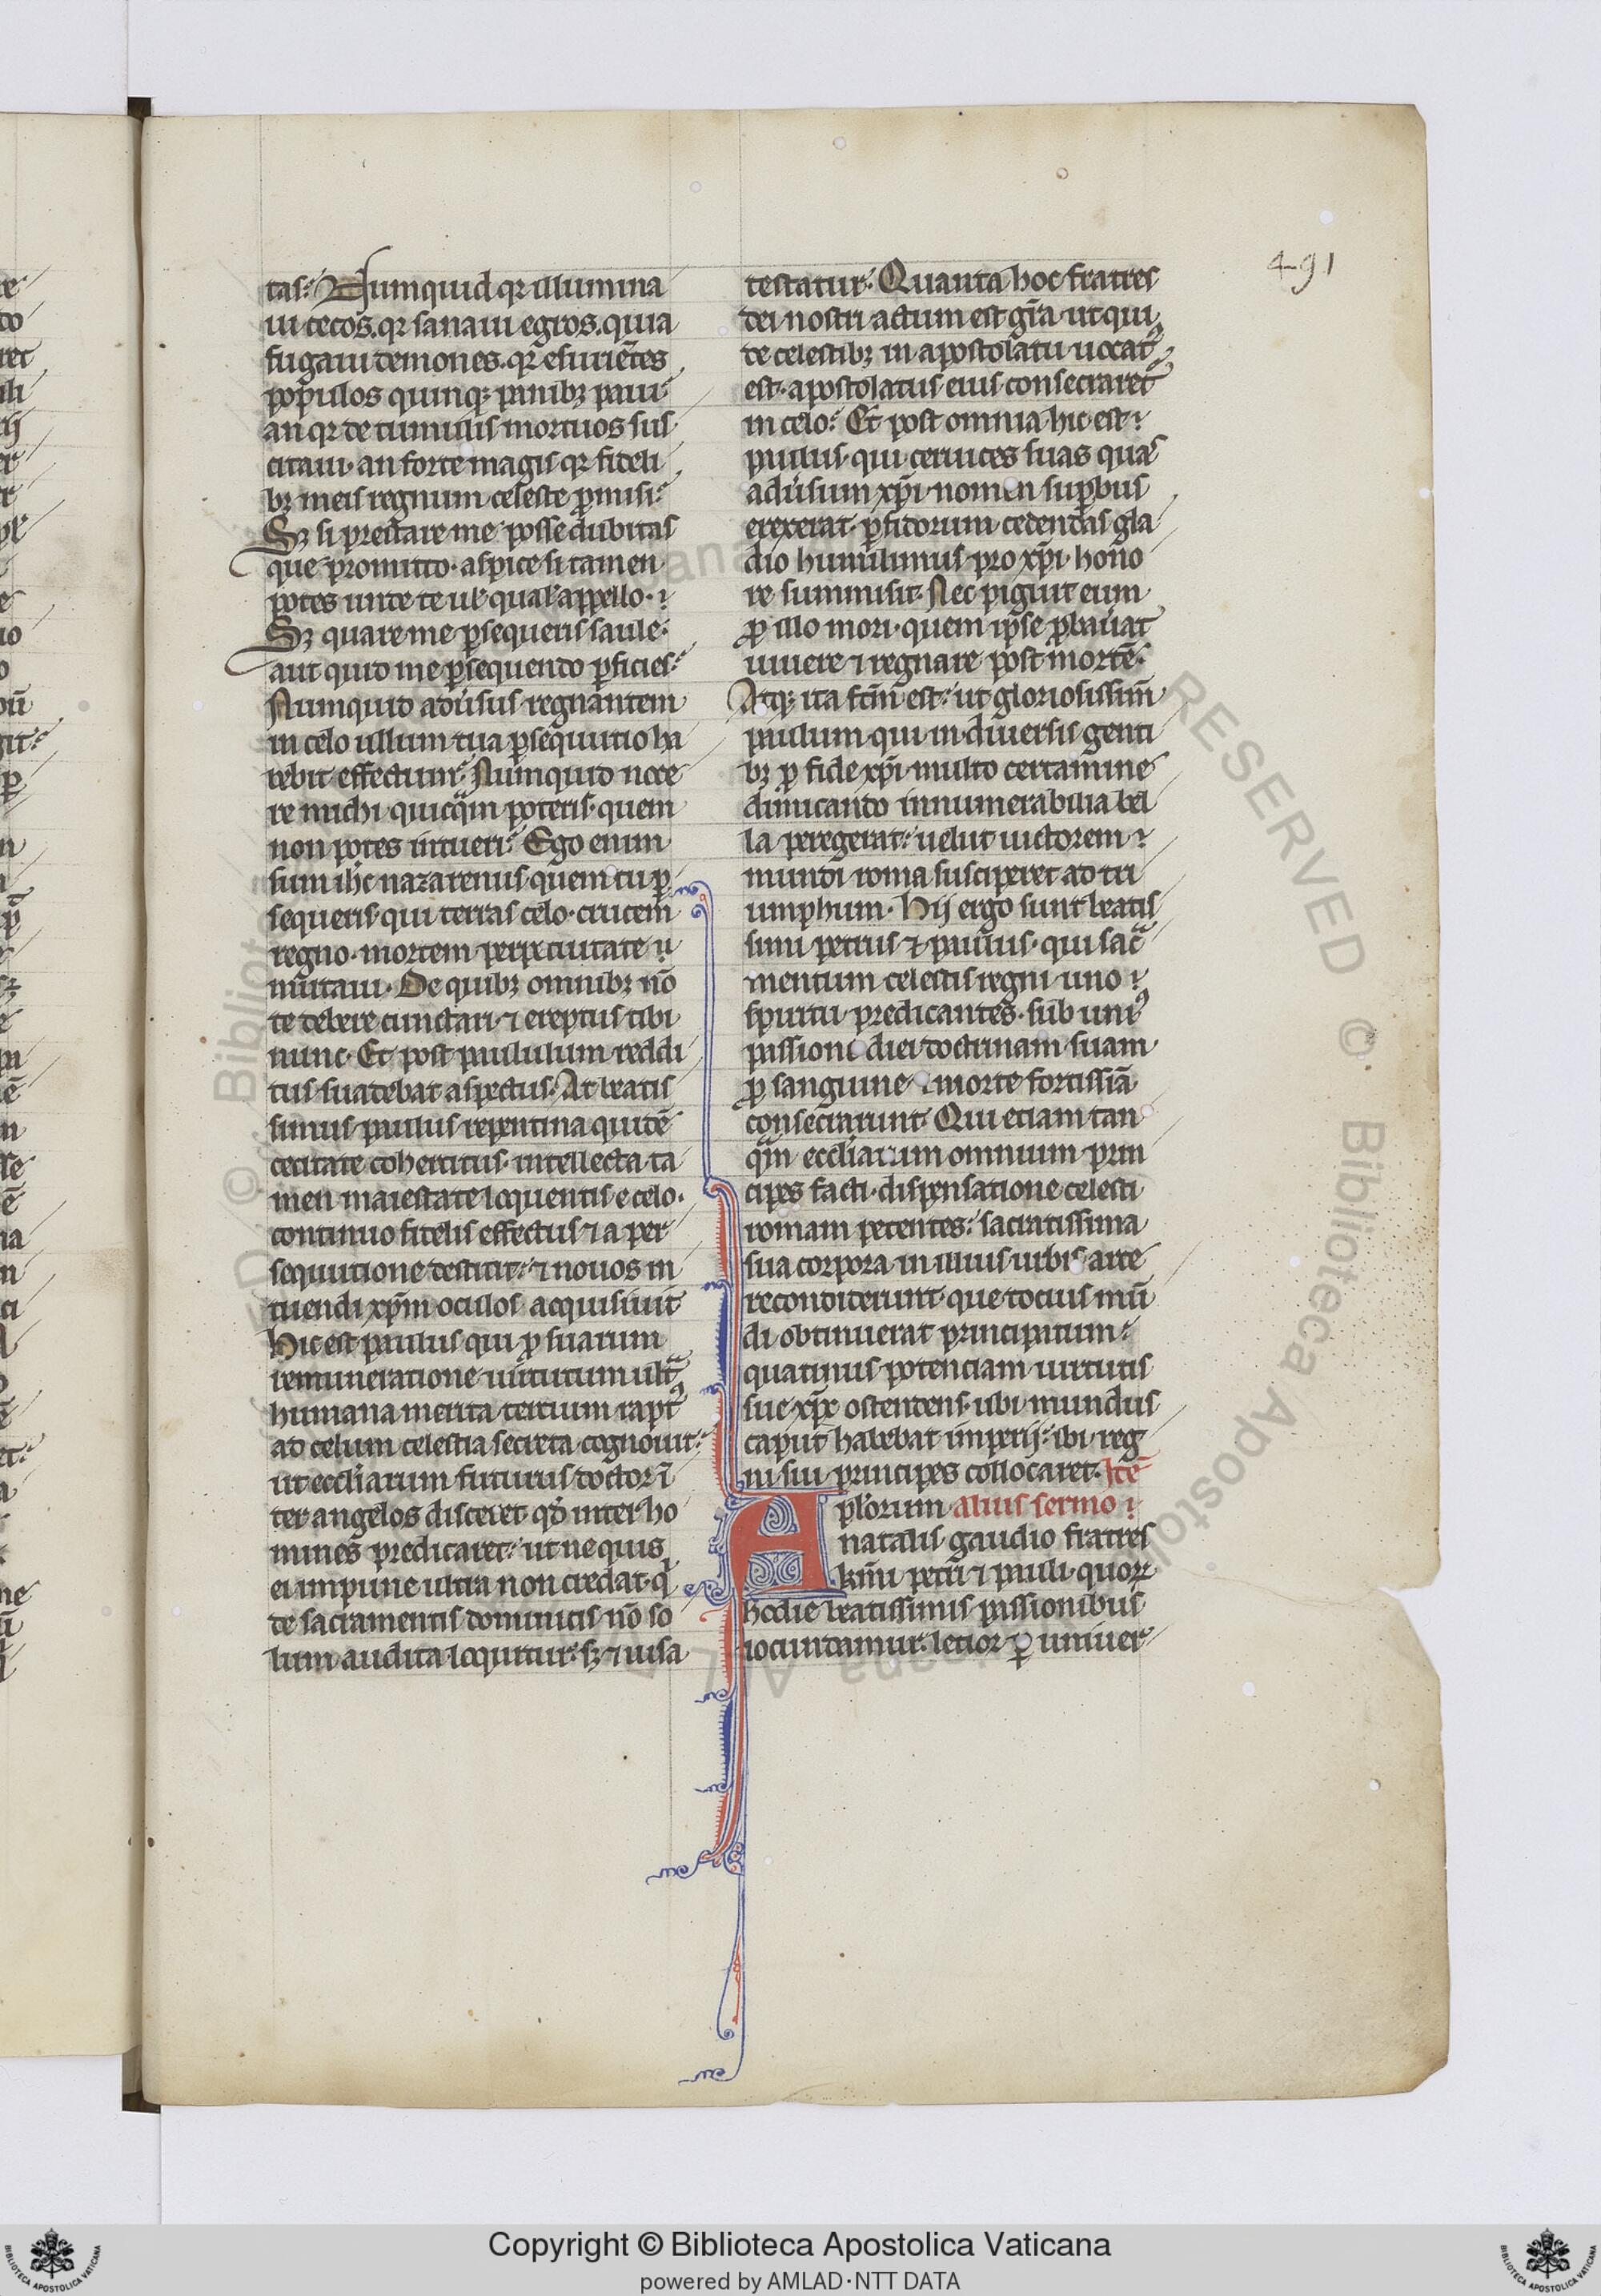 491
tas. Numquid qr illumina
ui cecos. qr sanaui egros. quia
fugaui demones. qr esuriẽtes
populos quinqꝫ panibꝫ paui
an qr de tumulis mortuos sus
citaui. an forte magis qr fideli
bꝫ meis regnum celeste ꝓmisi.
Sꝫ si prestare me posse dubitas
que promitto. aspice si tamen
potes unde te uł qualr appello.
Sꝫ quare me ꝑsequeris saule.
aut quid me ꝑsequendo ꝓficies.
Numquid aduͥsus regnantem
in celo ullum tua ꝑsequutio ha
bebit effectum. Numquid noce
re michi quicqͣm poteris. quem
non potes intueri. Ego enim
sum ihc nazarenus quem tu ꝑ
sequeris. qui terras celo. crucem
regno. mortem perpetuitate
mutaui. De quibꝫ omnibꝫ nõ
te debere cunctari ⁊ ereptus tibi
nunc. Et post paululum reddi
tus suadebat aspectus. At beatis
simus paulus repentina quidẽ
cecitate cohercitus. intellecta ta
men maiestate loquentis e celo.
continuo fidelis effectus ⁊ a per
sequutione destitit. ⁊ nouos in
tuendi xp̃m oculos acquisiuit
Hic est paulus qui ꝓ suarum
remuneratione uirtutum ultͣ
humana merita tercium raptꝰ
ad celum celestia secreta cognouit.
ut eccliarum futurus doctor ĩ
ter angelos disceret qđ inter ho
mines predicaret. ut ne quis
ei impune ultra non credat. qͥ
de sacramentis dominicis nõ so
lum audita loquitur. sꝫ ⁊ uisa
testatur. Quanta hoc fratres
dei nostri actum est gr̃a ut qui
de celestibꝫ in apostolatu uocatꝰ
est. apostolatus eius consecraret᷑
in celo. Et post omnia hic est
paulus. qui ceruices suas quas
aduͥsum xp̃i nomen supͥbus
erexerat ꝑfidorum cedendas gla
dio humilimus pro xp̃i hono
re summisit. Nec piguit eum
ꝓ illo mori. quem ipse ꝓbauͥat
uiuere ⁊ regnare post mortẽ.
Atqꝫ ita fcm̃ est. ut gloriosissim̃
paulum qui in diuersis genti
bꝫ ꝓ fide xp̃i multo certamine
dimicando innumerabilia bel
la peregerat. uelut uictorem
mundi roma susciperet ad tri
umphum. Hij ergo sunt beatis
simi petrus ⁊ paulus. qui sacͣ
mentum celestis regni uno
spiritu predicantes. sub uniꝰ
passioni diei doctrinam suam
ꝓ sanguine ⁊ morte fortissiã
consecrarunt. Qui etiam tan
qͣm eccliarum omnium prin
cipes facti. dispensatione celesti
romam petentes. sacratissima
sua corpora in illius urbis arce
recondiderunt. que tocius mũ
di obtinuerat principatum.
quatinus potenciam uirtutis
sue xp̃c ostendens. ubi mundus
caput habebat imperij. ibi reg
ni sui principes collocaret. Itẽ
Apłorum alius sermo
natalis gaudio fratres
km̃i petri ⁊ pauli. quorꝝ
hodie beatissimis passionibus
iocundamur. letior ꝑ uniuer
Copyright © Biblioteca Apostolica Vaticana
powered by AMLAD·NTT DATA